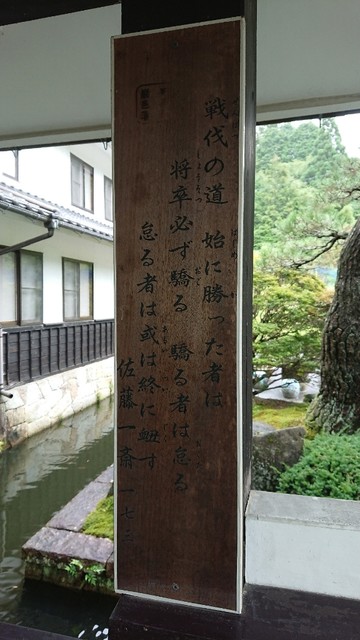 戦伐の道 始に勝った者は
将卒必ず驕る 驕る者は怠る
怠る者は或は終に衄す
佐藤一斎 一七三